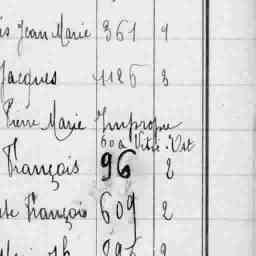 is Jean Marie 361 4
Jacques 1186 3
Pierre Marie Impropre
60a Vitré
François 96 2
François 609 2